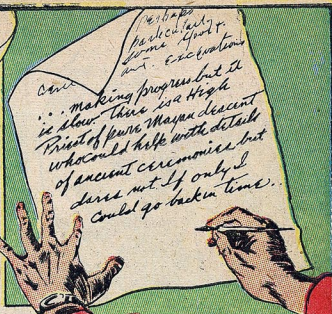 perhaps
particularly
some
and excavations
... making progress but it
is slow. There is a High
Priest of pure Mayan descent
who could help with details
of ancient ceremonies but
dares not. If only I
could go back in time..